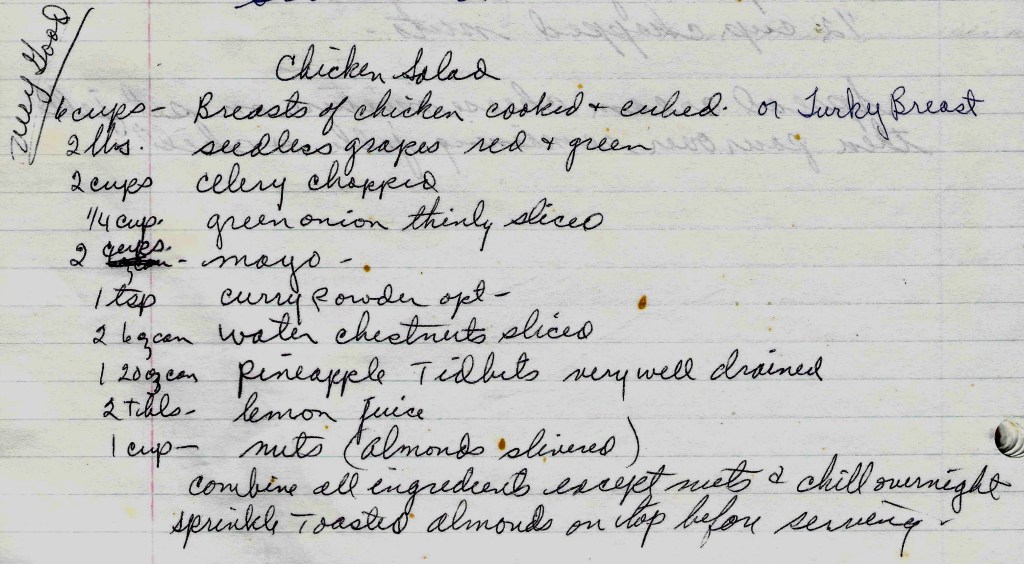 Very Good
Chicken Salad
6 cups - Breasts of chicken cooked + cubed. or Turky Breast
2 lbs. seedless grapes red + green
2 cups celery chopped
1/4 cup. green onion thinly sliced
2 cups. - mayo -
1 tsp curry powder opt -
2 6 oz can water chestnuts sliced
1 20 oz can pineapple Tidbits very well drained
2 Tbls - lemon juice
1 cup - nuts (almonds slivered)
combine all ingredients except nuts & chill overnight
sprinkle Toasted almonds on top before serving.